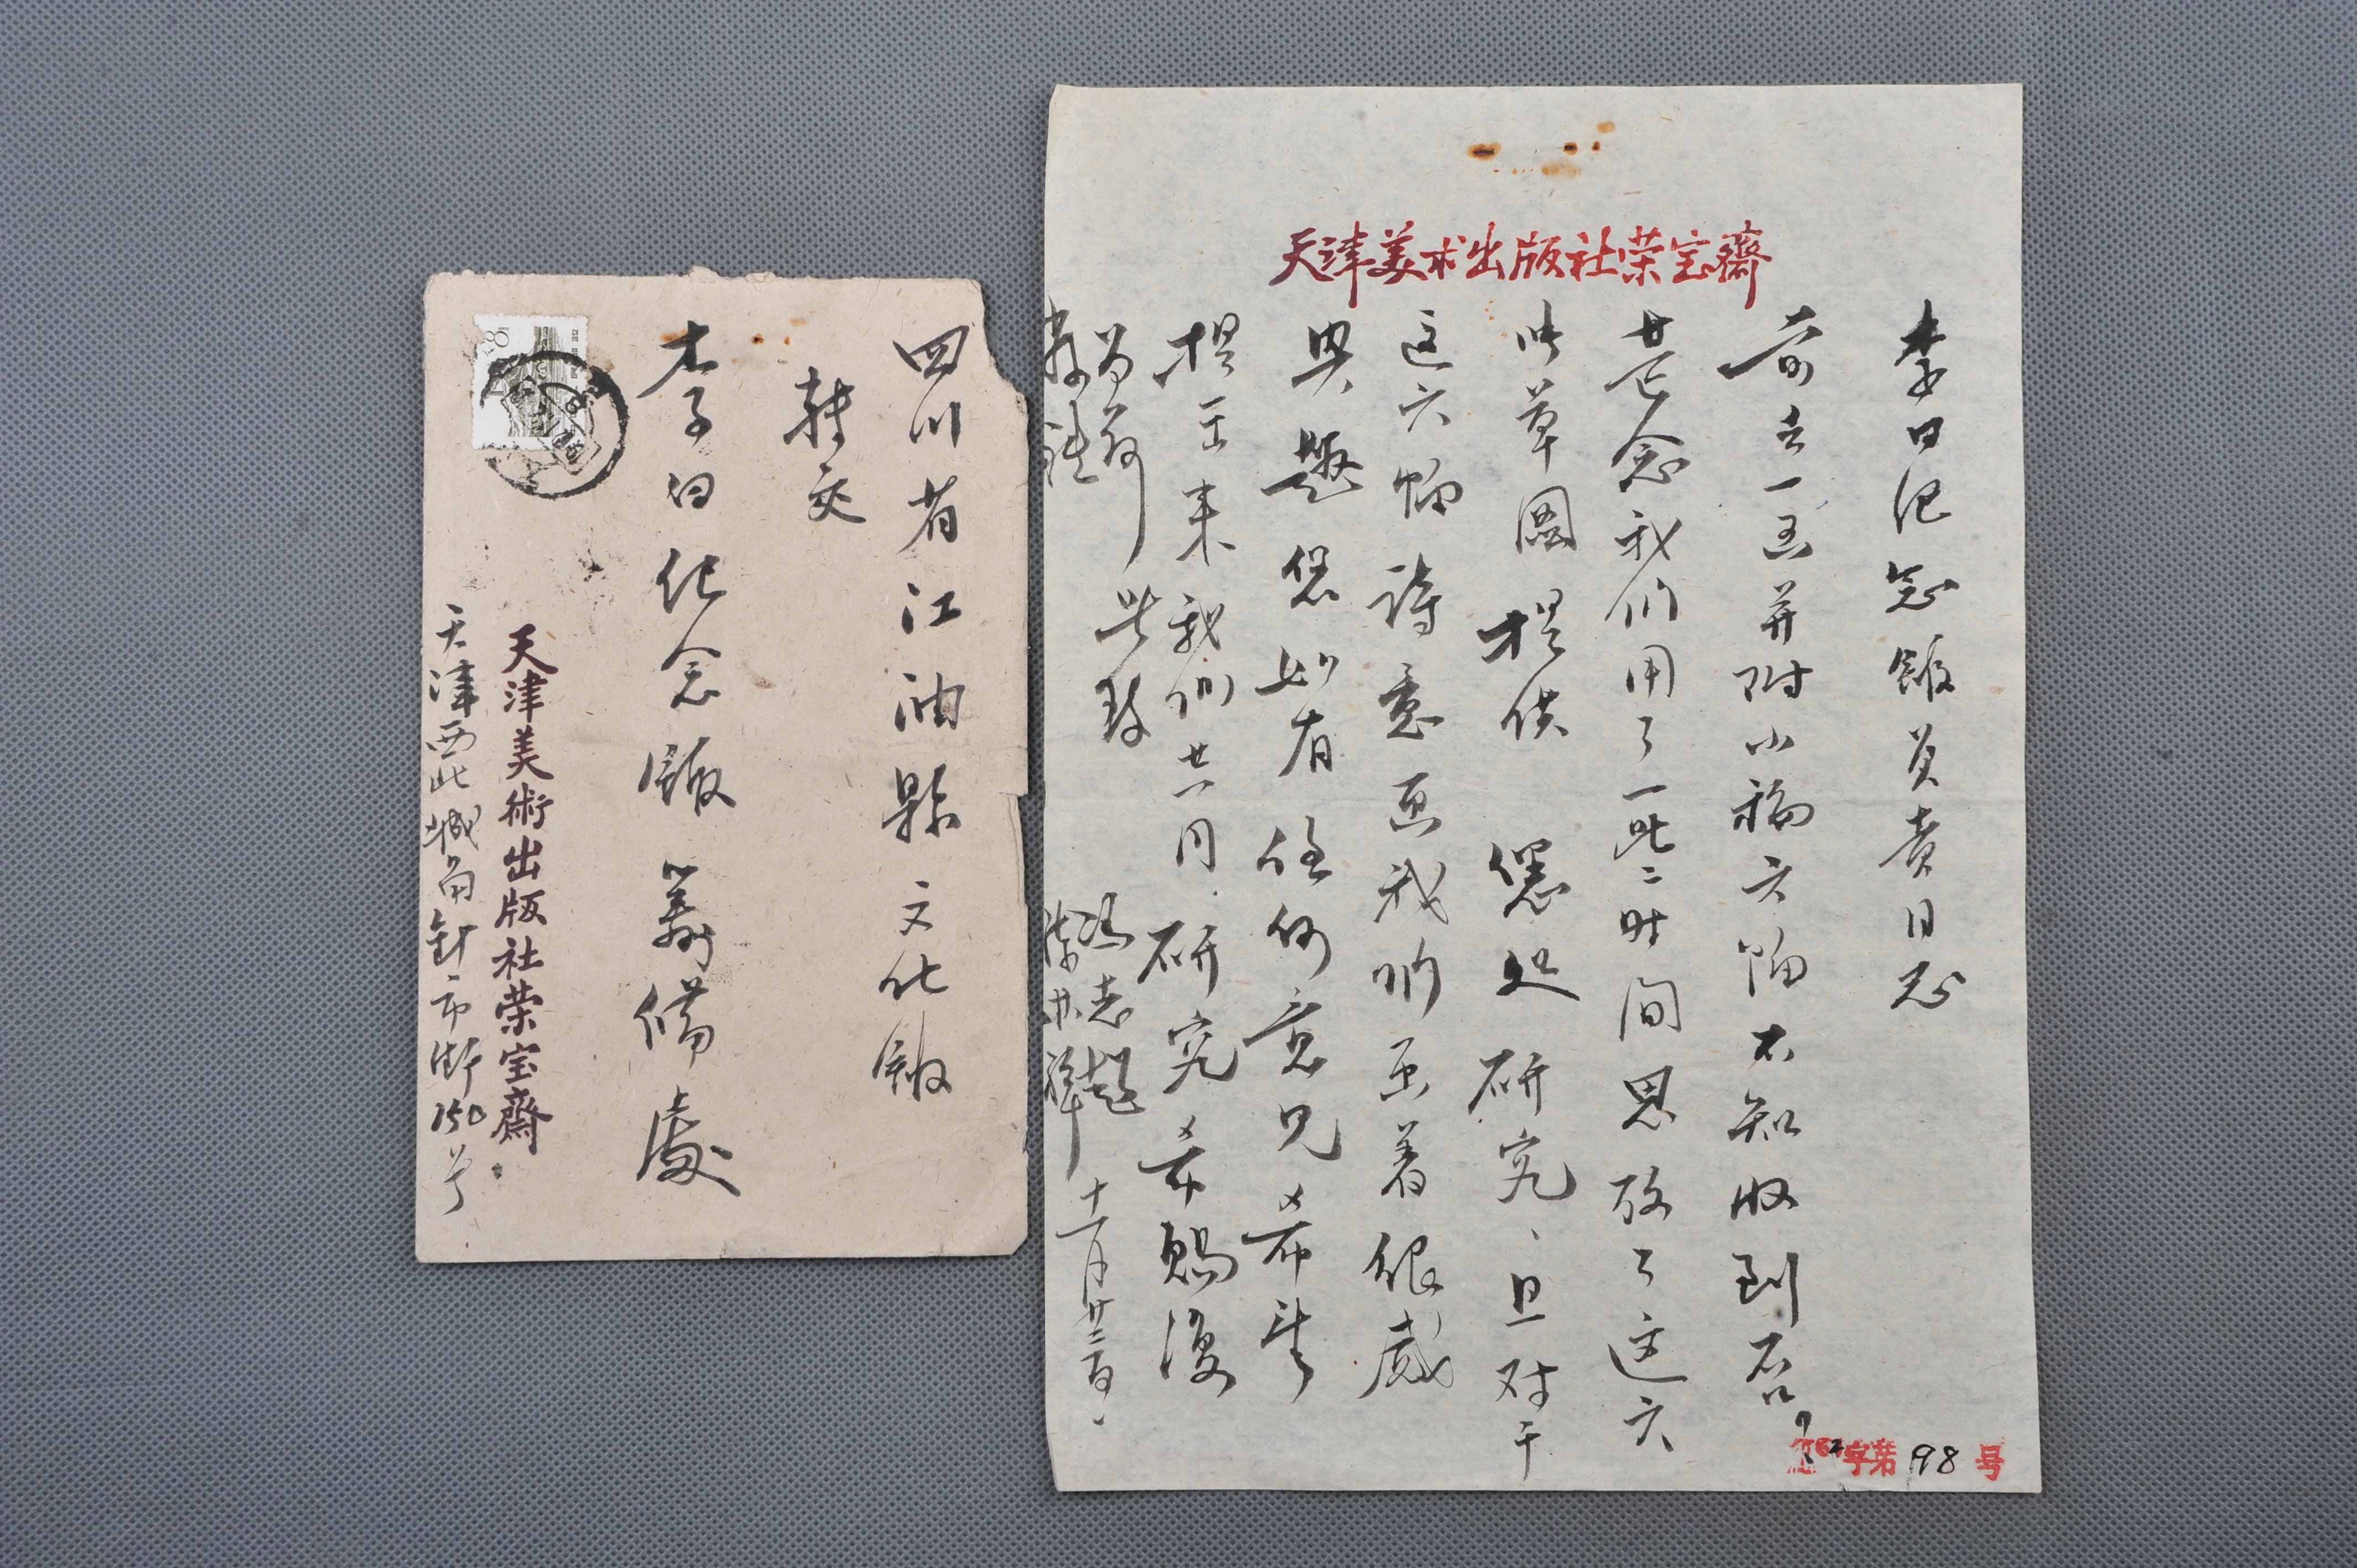 四川省江油縣文化館
轉交
李白纪念館籌備處
天津美術出版社荣宝齋
天津西北城角针市街150号
8
天津美术出版社荣宝齋
李白纪念館負责同志
前去一函并附小稿六幅不知收到否，
甚念我们用了一些时间思放了这六
草圖提供 您处研究、且对于
这六幅詩意画我们画着很感
興趣您如有任何意见希望
提出来我们共同研究希賜復
为荷 此致
敬礼
十一月廿二日
字第198号